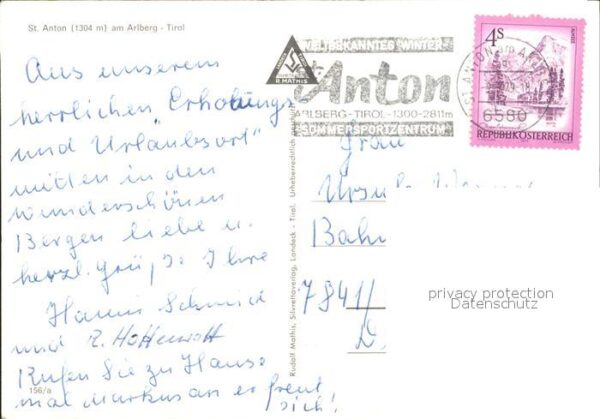 St. Anton (1304 m) am Arlberg - Tirol
Aus unserem
herrlichen „Erholungs
und Urlaubsort"
mitten in den
wunderschönen
Bergen liebe u.
herzl. Grüße Ihre
Hanni Schmid
und
Rufen Sie zu Hause
mal Markus an er freut
sich!
156/a
Rudolf Mathis, Silvrettaverlag, Landeck - Tirol. Urheberrechtlich
R. MATHIS
WELTBEKANNTES WINTER-
St Anton
ARLBERG-TIROL-1300-2811m
SOMMERSPORTZENTRUM
ST. ANTON AM ARLBERG
6580
4s
REPUBLIK ÖSTERREICH
Frau
Ursula
Bahn
7841
D.
privacy protection
Datenschutz